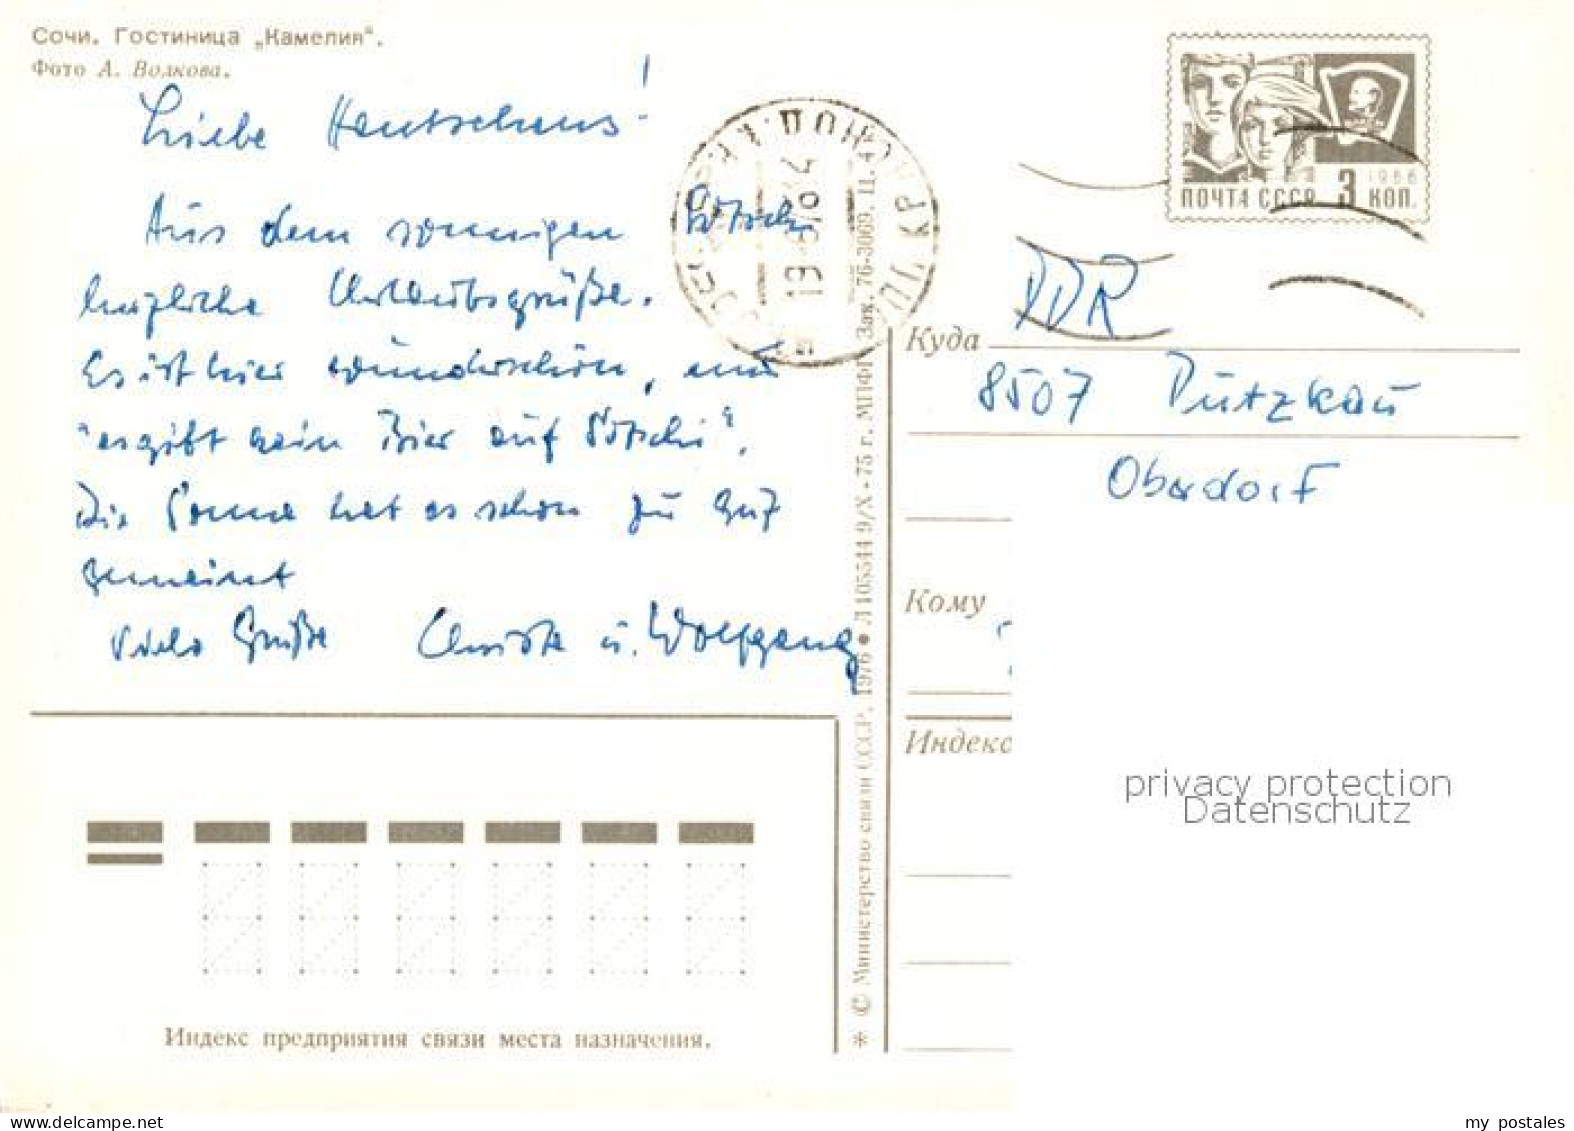 Сочи. Гостиница „Камелия“.
Фото А. Волкова.
Liebe Hentschens!
Aus dem sonnigen Sotschi
herzliche Urlaubsgrüße.
Es ist hier wunderschön, und
"es gibt kein Bier auf Sotschi".
Die Sonne hat es schon zu gut
gemeint
Viele Grüße Christa u. Wolfgang
Индекс предприятия связи места назначения.
* © Министерство связи СССР, 1976 ● Л 105544 9/X - 75 г. МПФГ Зак. 76-3069. Ц. 4
ПОЧТА СССР 3 КОП.
1966
DDR
Куда
8507 Putzkau
Oberdorf
Кому
Индекс
privacy protection
Datenschutz
my postales